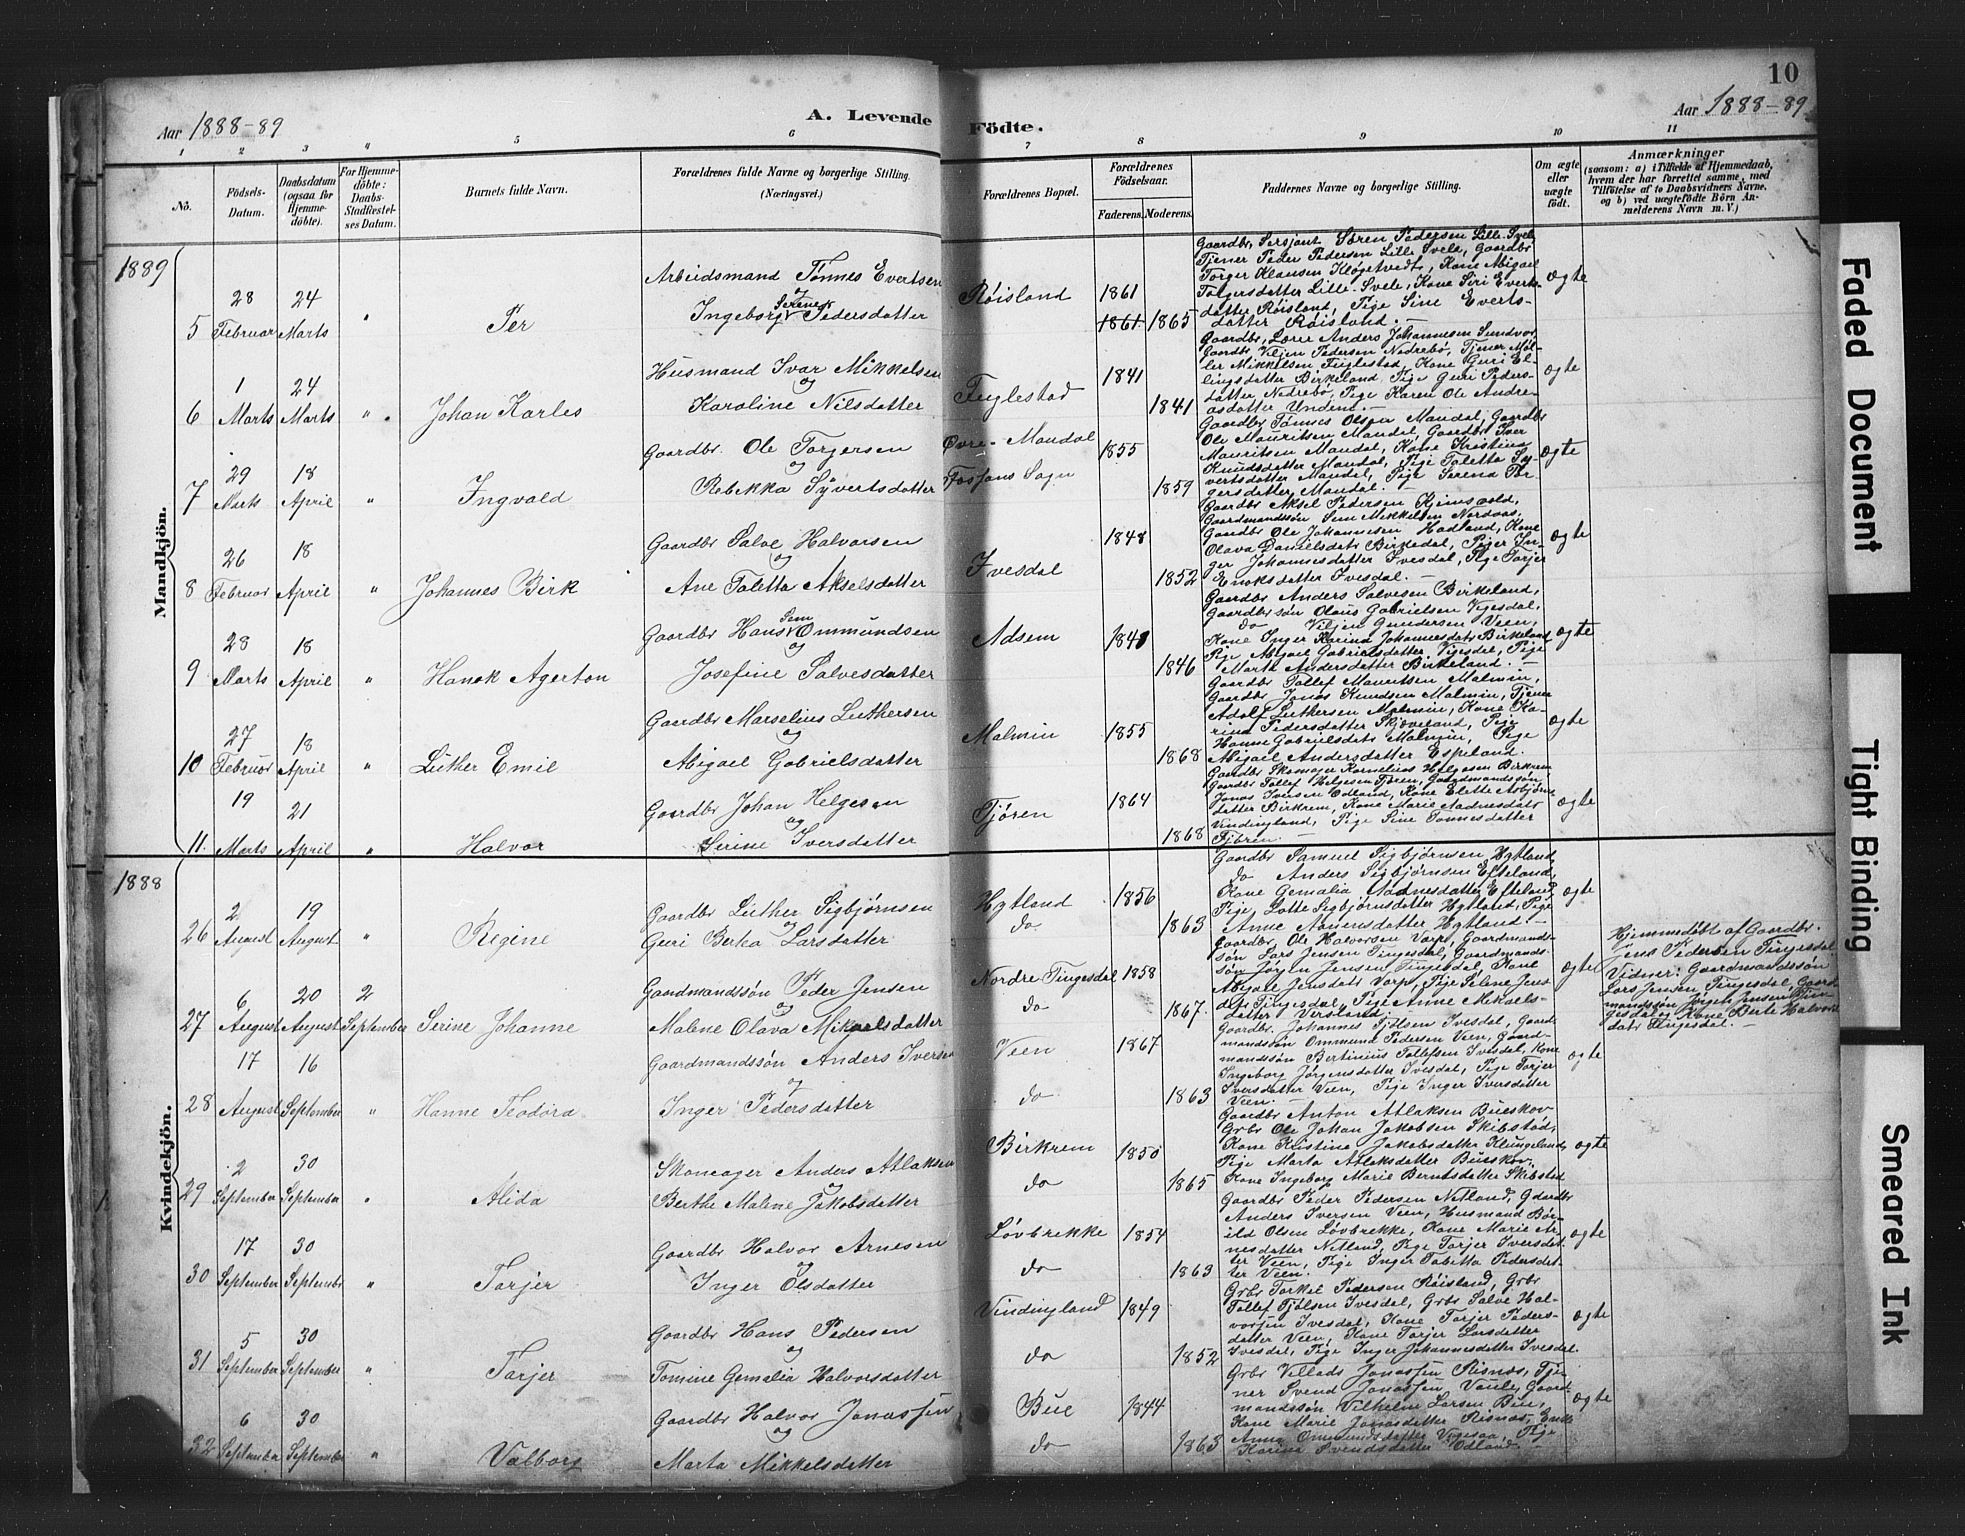 10
Aar 1888-89
A. Levende Födte.
Aar 1888-89
1 2 3 4 5 6 7 8 9 10 11
No.
Födsels-
Datum.
Daabsdatum
(ogsaa for
Hjemme-
döbte).
For Hjemme-
döbte:
Daabs-
Stadfæstel-
ses Datum.
Barnets fulde Navn.
Forældrenes fulde Navne og borgerlige Stilling.
(Næringsvei.)
Forældrenes Bopæl.
Forældrenes
Födselsaar.
Faderens. Moderens.
Faddernes Navne og borgerlige Stilling.
Om ægte
eller
uægte
födt.
Anmærkninger
(saasom: a) i Tilfælde af Hjemmedaab,
hvem der har forrettet samme, med
Tilföielse af to Daabsvidners Navne,
og b) ved uægtefödte Börn An-
melderens Navn m. V.)
Mandkjön.
1889
5
28 Februar
24 Marts
"
Per
Arbeidsmand Tønnes Evertsen
og
Ingeborg Serine Pedersdatter
Røisland
1861
1861 1865
Gaardbr, Sersjant Søren Pedersen Lille-Svele
Tjener Peder Pedersen Lille Svele, Gaardbr
Torger Klausen Kløgetvedt, Kone Abigael
Torgersdatter Lille-Svele, Kone Siri Everts-
datter Røisland, Pige Sine Everts-
datter Røisland.
ægte
6
1 Marts
24 Marts
"
Johan Karles
Husmand Ivar Mikkelsen
og
Karoline Nilsdatter
Fuglestad
1841
1841
Gaardbr, Lærer Anders Johannesen Sundvor
Gaardbr Viljen Pedersen Nedrebø, Tjener Møl-
ler Mikkelsen Fuglestad, Kone Guri El-
lingsdatter Birkeland, Pige Guri Peders-
datter Nedrebø, Pige Karen Ole Andre-
asdatter Undem.
ægte
7
29 Marts
18 April
"
Ingvald
Gaardbr. Ole Torgersen
og
Rebekka Syvertsdatter
Øvre-Mandal
Fosfans Sogn
1855
1859
Gaardbr Tønnes Olsen Mandal, Gaardbr
Ole Mauritsen Mandal, Gaardbr Iver
Mauritsen Mandal, Kone Kristina
Knudsdatter Mandal, Pige Taletta Sy-
vertsdatter Mandal, Pige Serena Tor-
gersdatter Mandal.
ægte
8
26 Februar
18 April
"
Johannes Birk
Gaardbr Salve Halvorsen
og
Ane Taletta Akselsdatter
Ivesdal
1848
1852
Gaardbr Aksel Pedersen
Gaardmandssøn Sem Mikkelsen Nordaas,
Gaardbr Ole Johannesen Hadland, Kone
Olava Danielsdatr Birkedal, Piger In-
ger Johannesdatter Ivesdal, Pige Torjer
Enoksdatter Ivesdal.
ægte
9
28 Marts
18 April
"
Hanok Agerton
Gaardbr Hans Sem Ommundsen
og
Josefine Salvesdatter
Adsem
1848
1846
Gaardbr Anders Salvesen Birkeland,
Gaardbrsøn Olaus Gabrielsen Vigesdal,
do Viljen Gundersen Veen,
Kone Inger Karina Johannesdatr Birkeland
Pige Abigael Gabrielsdatter Vigesdal, Pige
Marte Andersdatter Birkeland.
ægte
10
27 Februar
18 April
"
Luther Emil
Gaardbr Marselius Luthersen
og
Abigael Gabrielsdatter
Malmin
1855
1868
Gaardbr Tollef Mauritsen Malmin,
Gaardbr Jonas Knudsen Malmin, Tjener
Adolf Luthersen Malmin, Kone Ka-
rina Pedersdatter Skjæveland, Pige
Hanne Gabrielsdatr Malmin, Pige
Abigael Andersdatter Espeland.
ægte
11.
19 Marts
21 April
"
Halvor
Gaardbr Johan Helgesen
og
Serine Iversdatter
Tjøren
1864
1868
Gaardbr Skomager Kornelius Helgesen Birkrem,
Gaardbr Tollef Helgesen Tjøren, Gaardmandssøn
Jonas Iversen Odland, Kone Elette Asbjørns-
datter Birkrem, Kone Marie Aadnesdatr
Vindingland, Pige Sine Tønnesdatter
Tjøren.
ægte
Kvindekjön.
1888
26
2 August
19 August
"
Regine
Gaardbr Luther Sigbjørnsen
og
Guri Berta Larsdatter
Hgtland
do
1856
1863
Gaardbr Samuel Sigbjørnsen Hgtland,
do Anders Sigbjørnsen Efteland,
Kone Gemalia Aadnesdatter Efteland,
Pige Lotte Sigbjørnsdatter Hgtland, Pige
Anne Aanensdatter Hgtland.
ægte
27
6 August
20 August
2 September
Serine Johanne
Gaardmandssøn Peder Jensen
og
Malene Olava Mikaelsdatter
Nordre Tingesdal
do
1858
1867.
Gaardbr, Ole Halvorsen Varp, Gaardmands-
søn Lars Jensen Tingesdal, Gaardmands-
søn Jørgen Jensen Tingesdal, Kone
Abigael Jensdatr Varp, Pige Seline Jens-
datr Tingesdal, Pige Anne Mikaels-
datter Versland.
ægte
Hjemmedöbt af Gaardbr.
Jens Pedersen Tingesdal
Vidner: Gaardmandssøn
Lars Jensen Tingesdal, Gaard-
mandssøn Jørgen Jensen Tin-
gesdal og Kone Berte Halvors-
datr Tingesdal.
28
17 August
16 September
"
Hanne Teodora
Gaardmandssøn Anders Iversen
og
Inger Pedersdatter
Veen
do
1867
1863
Gaardbr. Johannes Tjølsen Ivesdal, Gaard-
mandssøn Ommund Pedersen Veen, Gaard-
mandssøn Bertinius Tollefsen Ivesdal, Kone
Ingeborg Jørgensdatter Ivesdal, Pige Torjer
Iversdatter Veen, Pige Inger Iversdatter
Veen.
ægte
29
2 September
30 September
"
Alida
Skomager Anders Atlaksen
og
Berthe Malene Jakobsdatter
Birkrem
do
1850
1865
Gaardbr Anton Atlaksen Bueskov
Grbr Ole Johan Jakobsen Skibstad,
Kone Kristine Jakobsdatter Klungeland,
Pige Marta Atlaksdatter Bueskov,
Kone Ingeborg Marie Berntsdatter Skibstad
ægte
30
17 September
30 September
"
Tarjer
Gaardbr Halvor Arnesen
og
Inger Olsdatter
Løvbrekke
do
1854
1863
Gaardbr Peder Pedersen Netland, Gaardbr
Anders Iversen Veen, Husmand Bør-
ild Olsen Løvbrekke, Kone Marie Ar-
nesdatter Netland, Pige Tarjer Iversdat-
ter Veen, Pige Inger Tabitta Pedersdat-
ter Veen.
ægte
31
5 September
30 September
"
Tarjer
Gaardbr Hans Pedersen
og
Tomine Gemalia Halvorsdatter
Vindingland
do
1849
1852
Grbr Torkel Pedersen Røisland, Grbr
Tollef Tjølsen Ivesdal, Grbr Salve Hal-
vorsen Ivesdal, Kone Tarjer Peders-
datter Veen, Kone Tarjer Larsdatter
Ivesdal, Pige Inger Johannesdatter Ivesdal.
ægte
32
6 September
30 September
"
Valborg
Gaardbr Halvor Jonassen
og
Marta Mikkelsdatter
Bue
do
1844
1863
Grbr Villads Jonassen Risnæs, Tje-
ner Svend Jonassen Vaule, Gaard-
mandssøn Vilhelm Larsen Bue,
Kone Marie Jonasdatter Risnæs, Enke
Anna Ommundsdatter Vigesaa, Pige
Karina Svendsdatter Odland.
ægte
Faded Document
Tight Binding
Smeared Ink